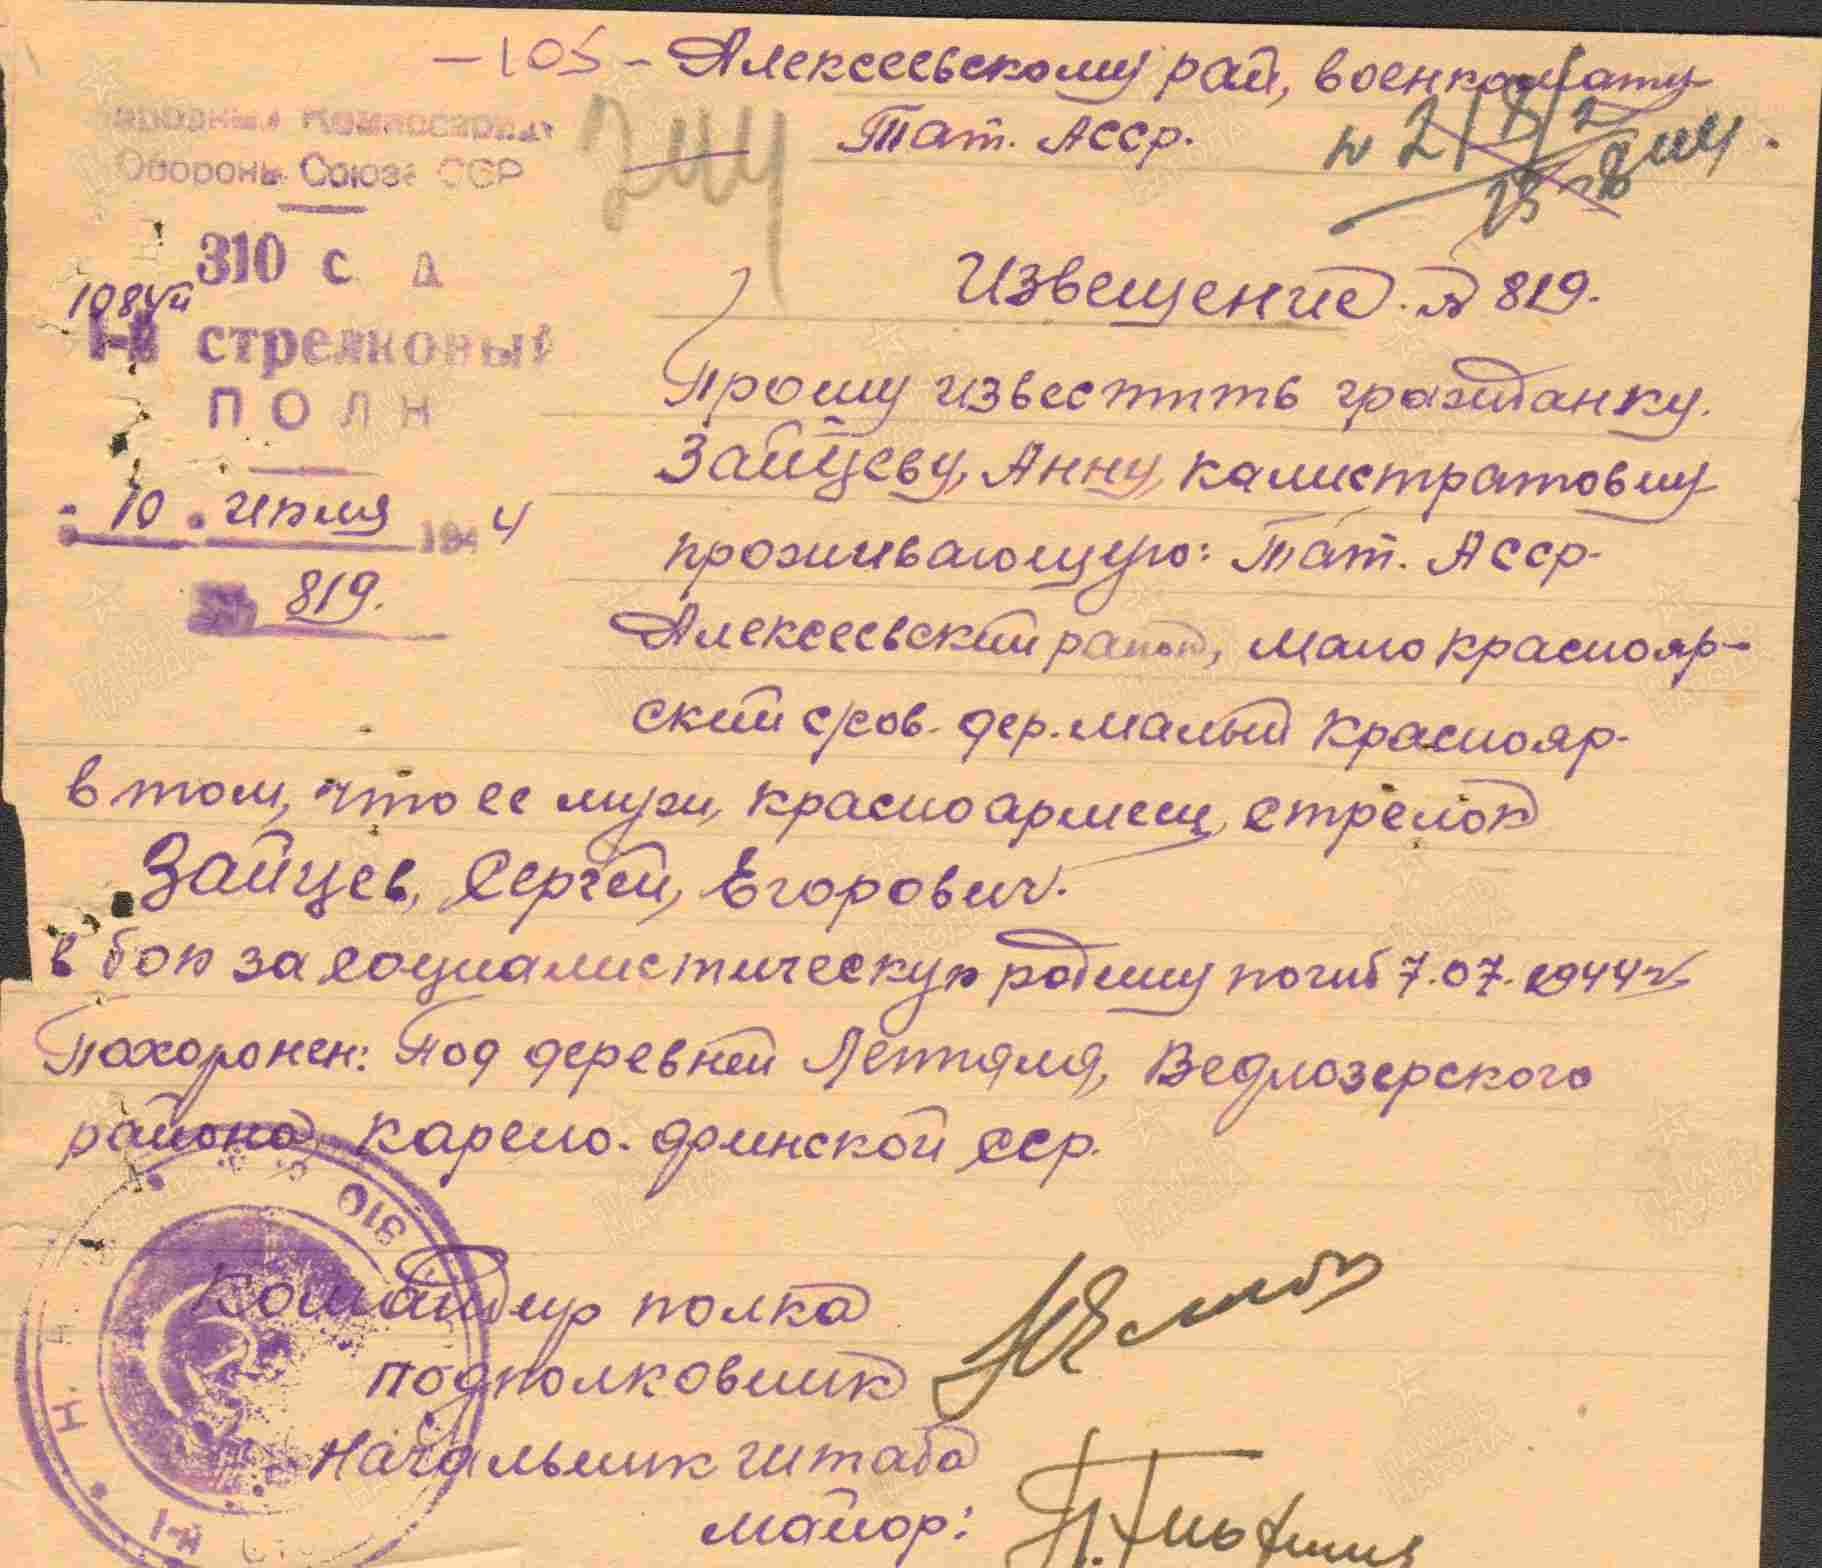 -105- Алексеевскому рай, военкомату
Тат. АССР.
Народный Комиссариат
Обороны Союза ССР
244
310 с Д
1084й
1-й стрелковый
ПОЛК
10 июля 1944
819.
Извещение № 819.
Прошу известить гражданку.
Зайцеву, Анну, калистратовну
проживающую: Тат. АССР-
Алексеевский район, Мало краснояр-
ский с/сов. дер. малый Краснояр-
в том, что ее муж, красноармеец, стрелок
Зайцев, Сергей, Егорович.
в бою за социалистическую родину погиб 7.07.1944г.
Похоронен: Под деревней Лептяля, Ведлозерского
района, Карело-финской ССР.
310
Командир полка
подполковник
Начальник штаба
майор: